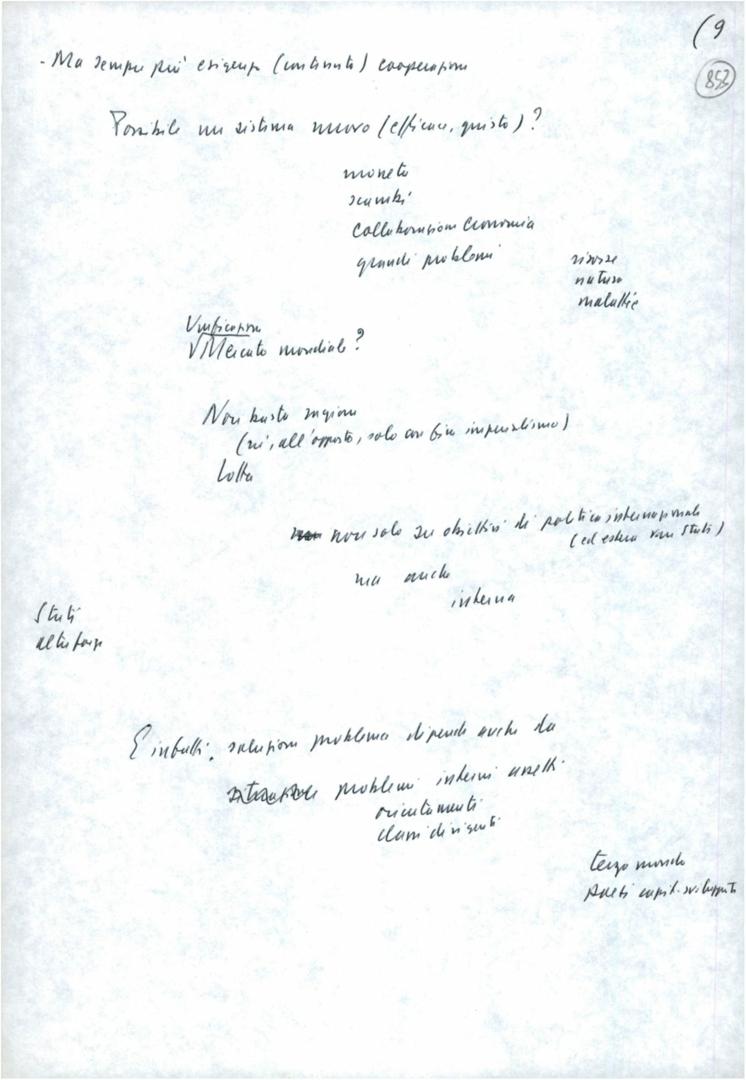 (9
853
- Ma sempre più esigenza (contenuto) cooperazione
Possibile un sistema nuovo (efficace, giusto)?
moneta
scambi
collaborazione economia
grandi problemi
risorse
natura
malattie
Unificazione
Mercato mondiale?
Non basta ragione
(né, all'opposto, solo con fine imperialismo)
Lotta
non solo su obiettivi di politica internazionale
(ed estera vari Stati)
ma anche
interna
Stati
altre forze
E infatti, soluzione problema dipende anche da
problemi interni assetti
orientamenti
classi dirigenti
terzo mondo
paesi capit. sviluppati